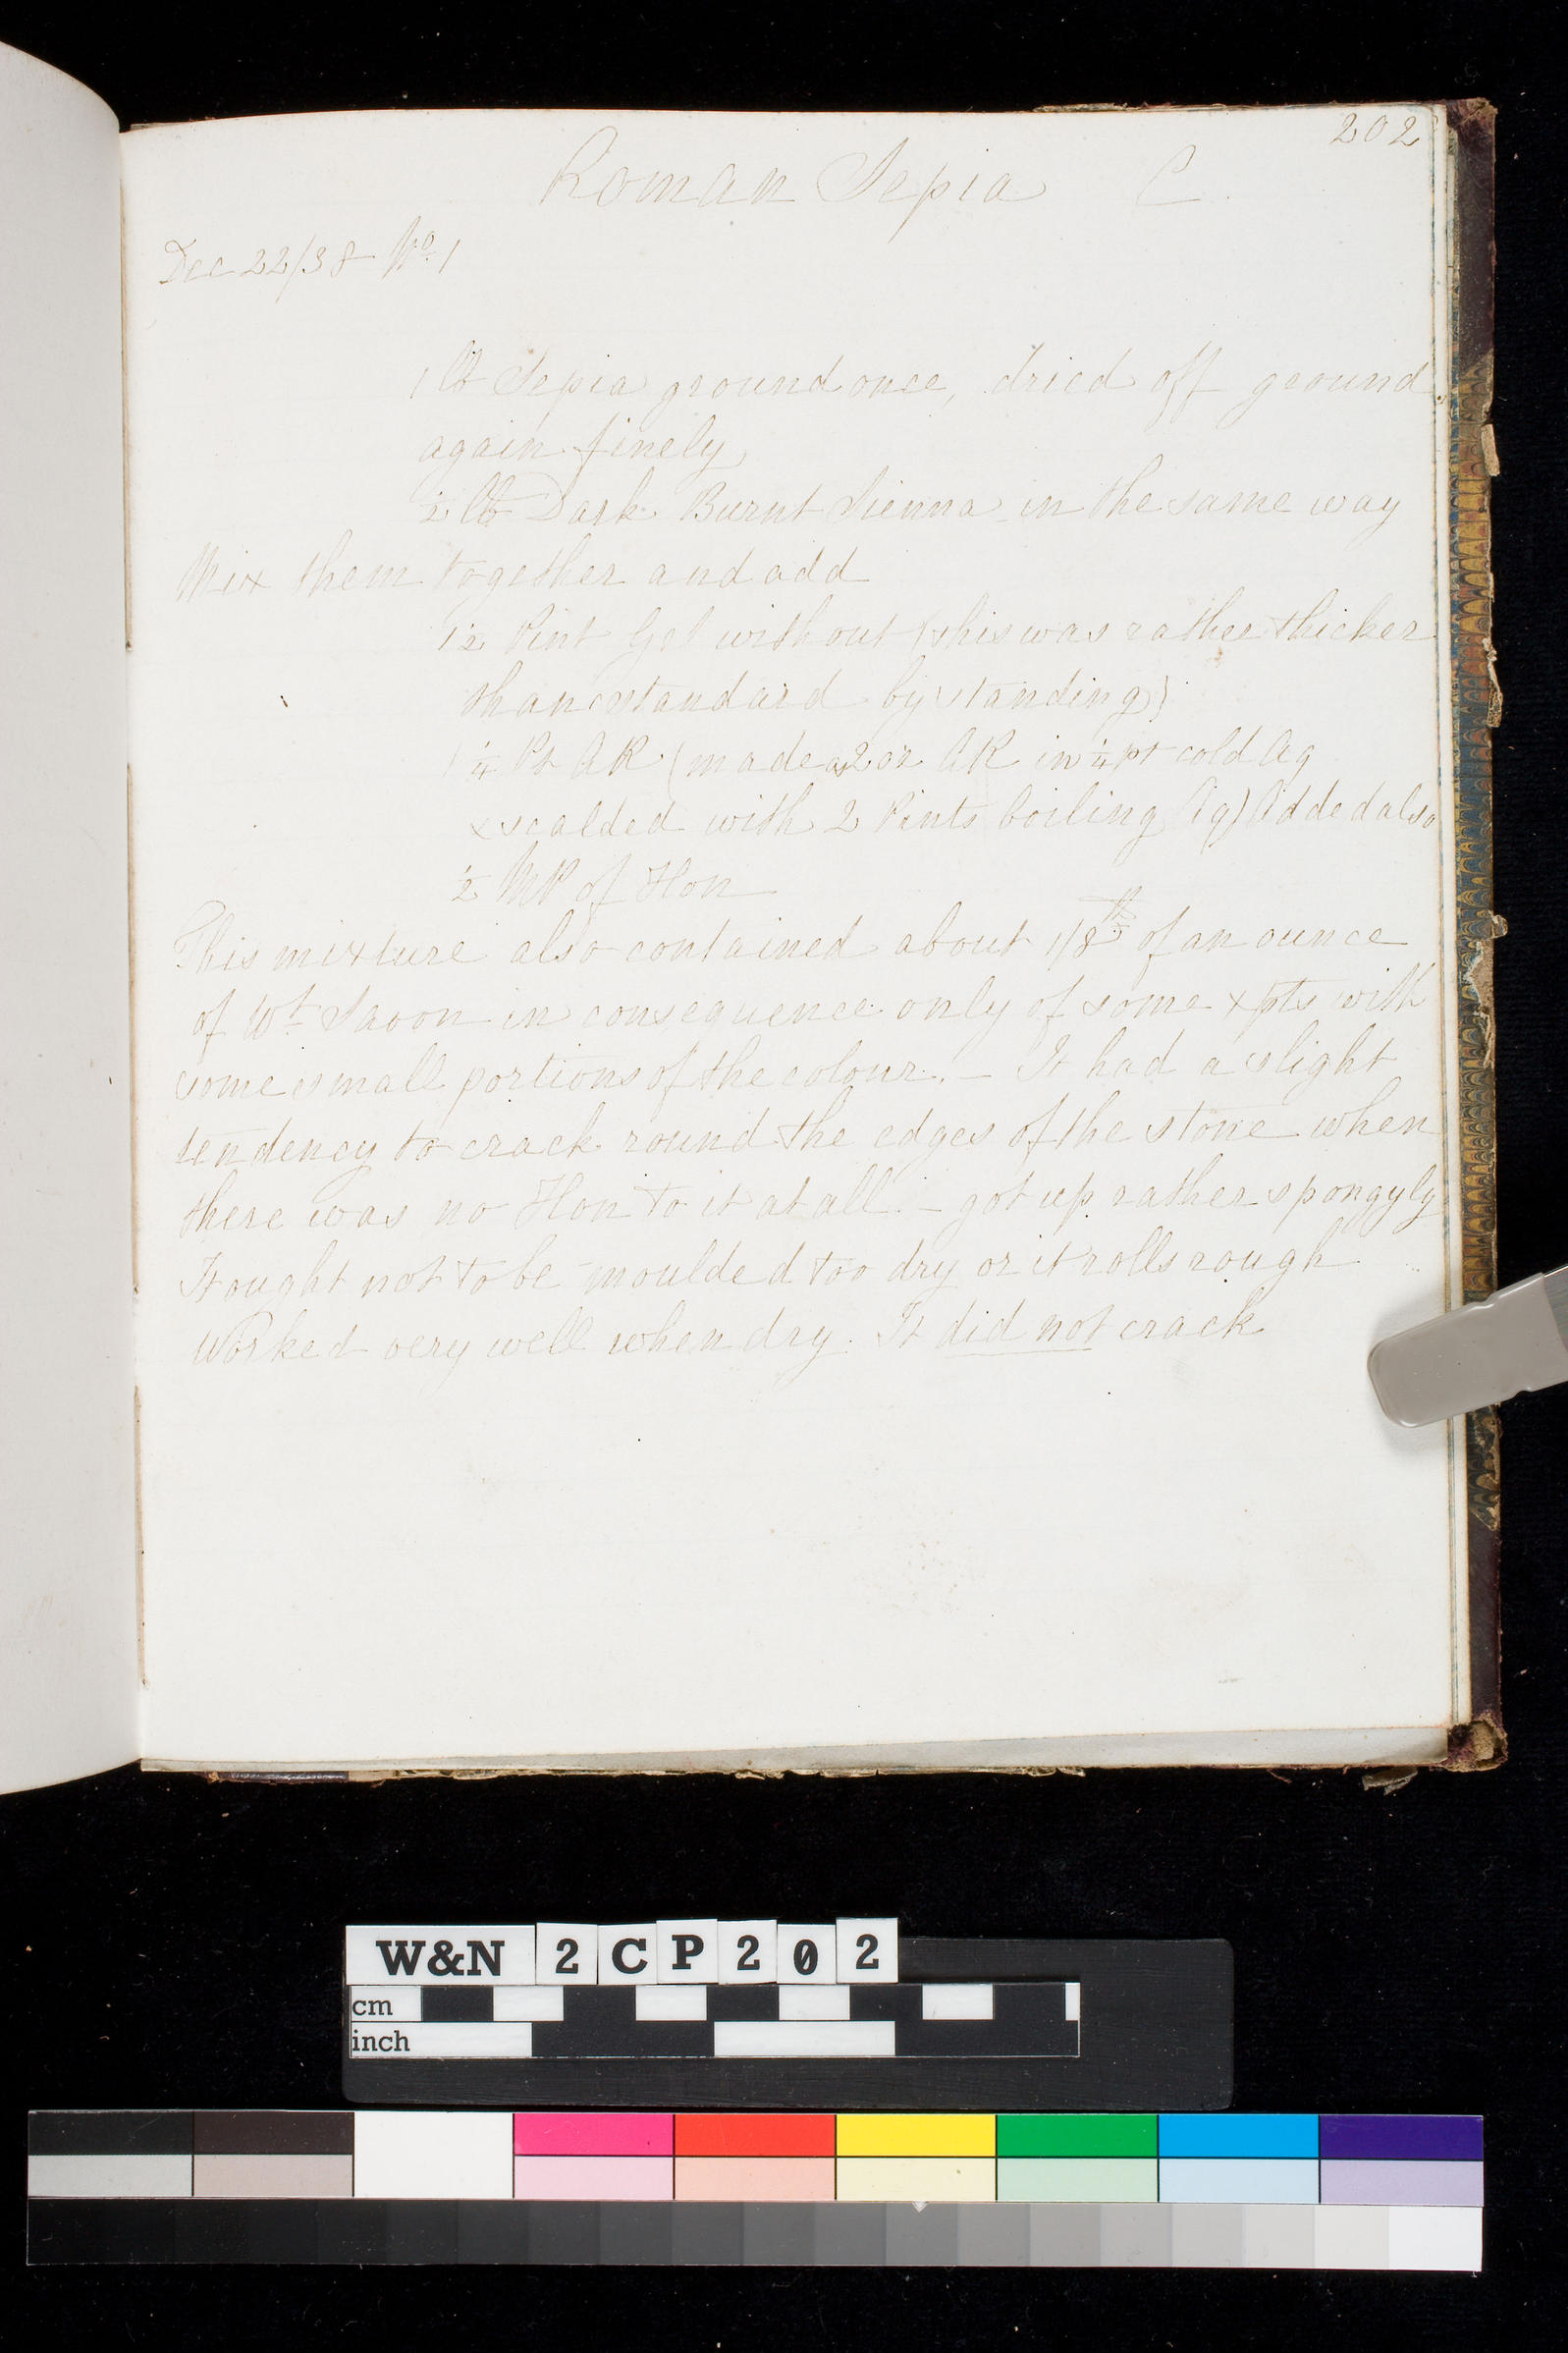 202
Roman Sepia C.
Dec 22/38 No. 1
1 lb Sepia ground once, dried off ground
again finely
½ lb Dark Burnt Sienna in the same way
Mix them together and add
1½ Pint Gel without (this was rather thicker
than standard by standing)
¼ Pt AR (made 2 oz AR in ¼ pt cold Aq
x scalded with 2 Pints boiling Aq) Added also
½ MP of Hon
This mixture also contained about 1/8th of an ounce
of Wt Savon in consequence only of some xpts with
some small portions of the colour. — It had a slight
tendency to crack round the edges of the stone when
there was no Hon to it at all. — got up rather spongyly
It ought not to be moulded too dry or it rolls rough
Worked very well when dry. It did not crack
W&N 2CP202
cm
inch